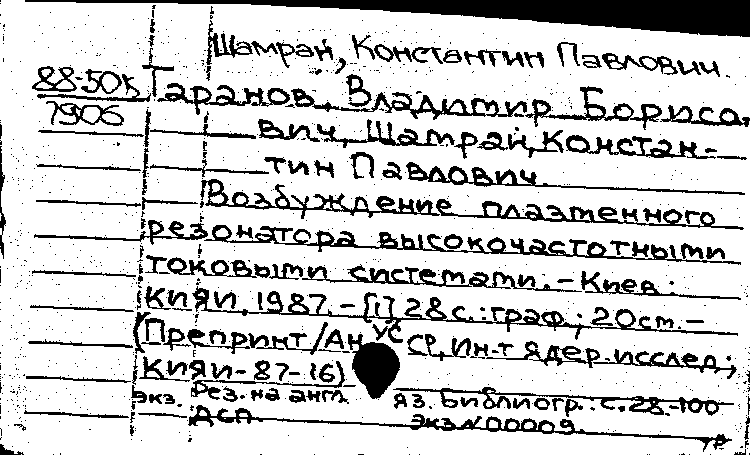 Шамрай, Константин Павлович.
88-50к Таранов, Владимир Борисо-
7906 вич, Шамрай, Констан-
тин Павлович.
Возбуждение плазменного
резонатора высокочастотными
токовыми системами. - Киев:
КИЯИ, 1987. - [1] 28 с.: граф.; 20 см. -
(Препринт/АН УССР, Ин-т ядер. исслед.;
КИЯИ-87-16)
Рез. на англ. яз. Библиогр.: с. 28.-100
экз. ДСП. Экз. N 00009.